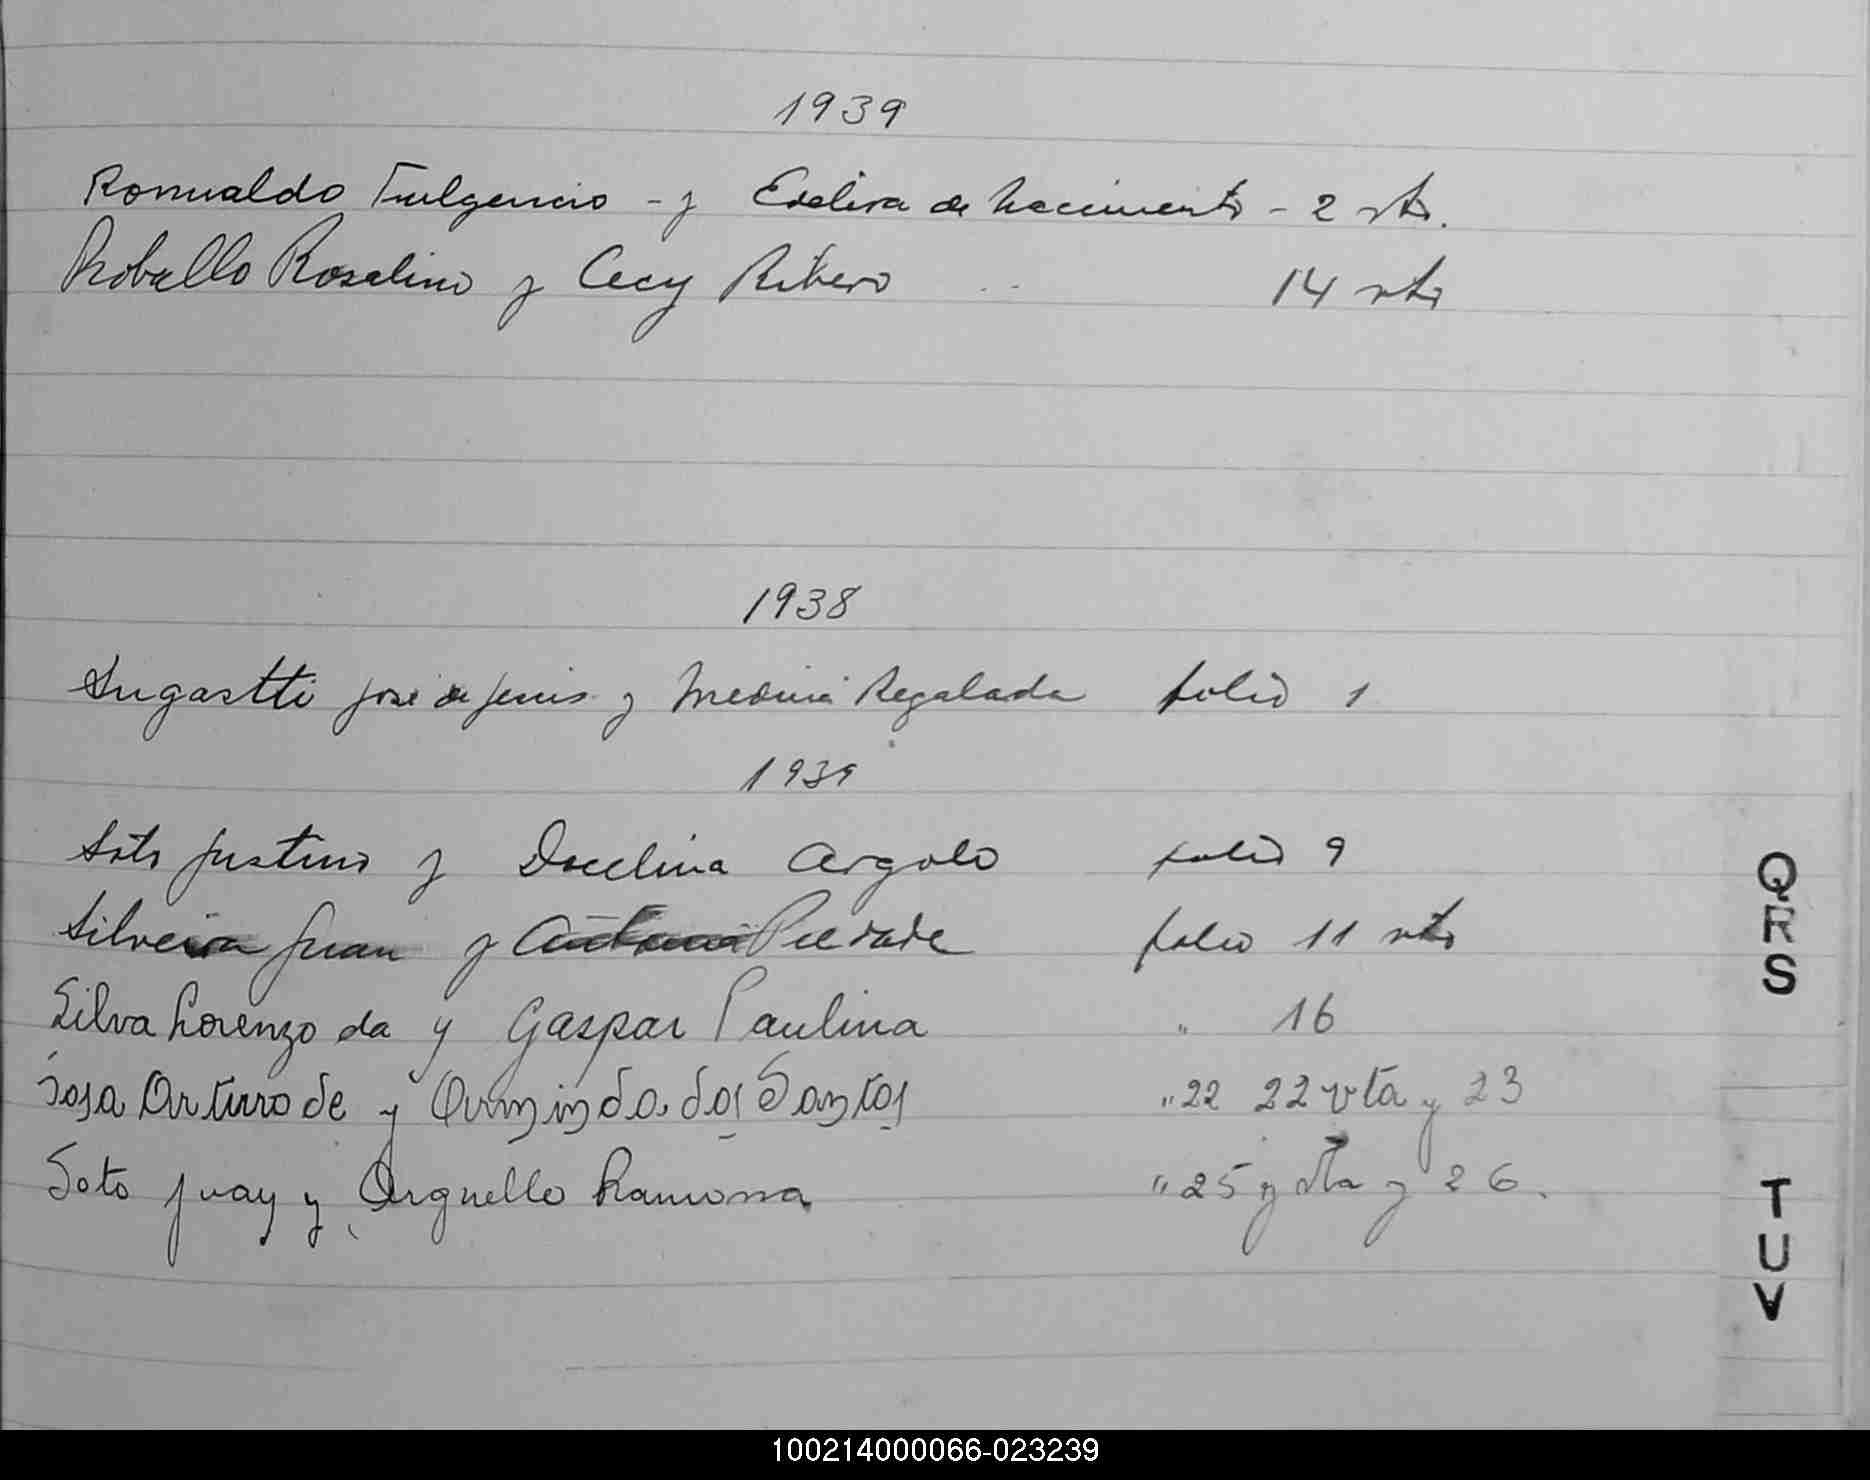 1939
Romualdo Fulgencio - y Etelvra de Nacimiento - 2 vto.
Roballo Rosalino y Cecy Ribero 14 vto
1938
Sugastti José de Jesus y Medina Regalada folio 1
1939
Soto Justino y Docelina Argolo folio 9
Silveira Juan y Antonia Piedade folio 11 vto
Silva Lorenzo da y Gaspar Paulina " 16
Sosa Arturo de y Ormzinda dos Santos " 22 22 vta y 23
Soto Juan y Arguello Ramona " 25 y vta y 26.
Q
R
S
T
U
V
100214000066-023239